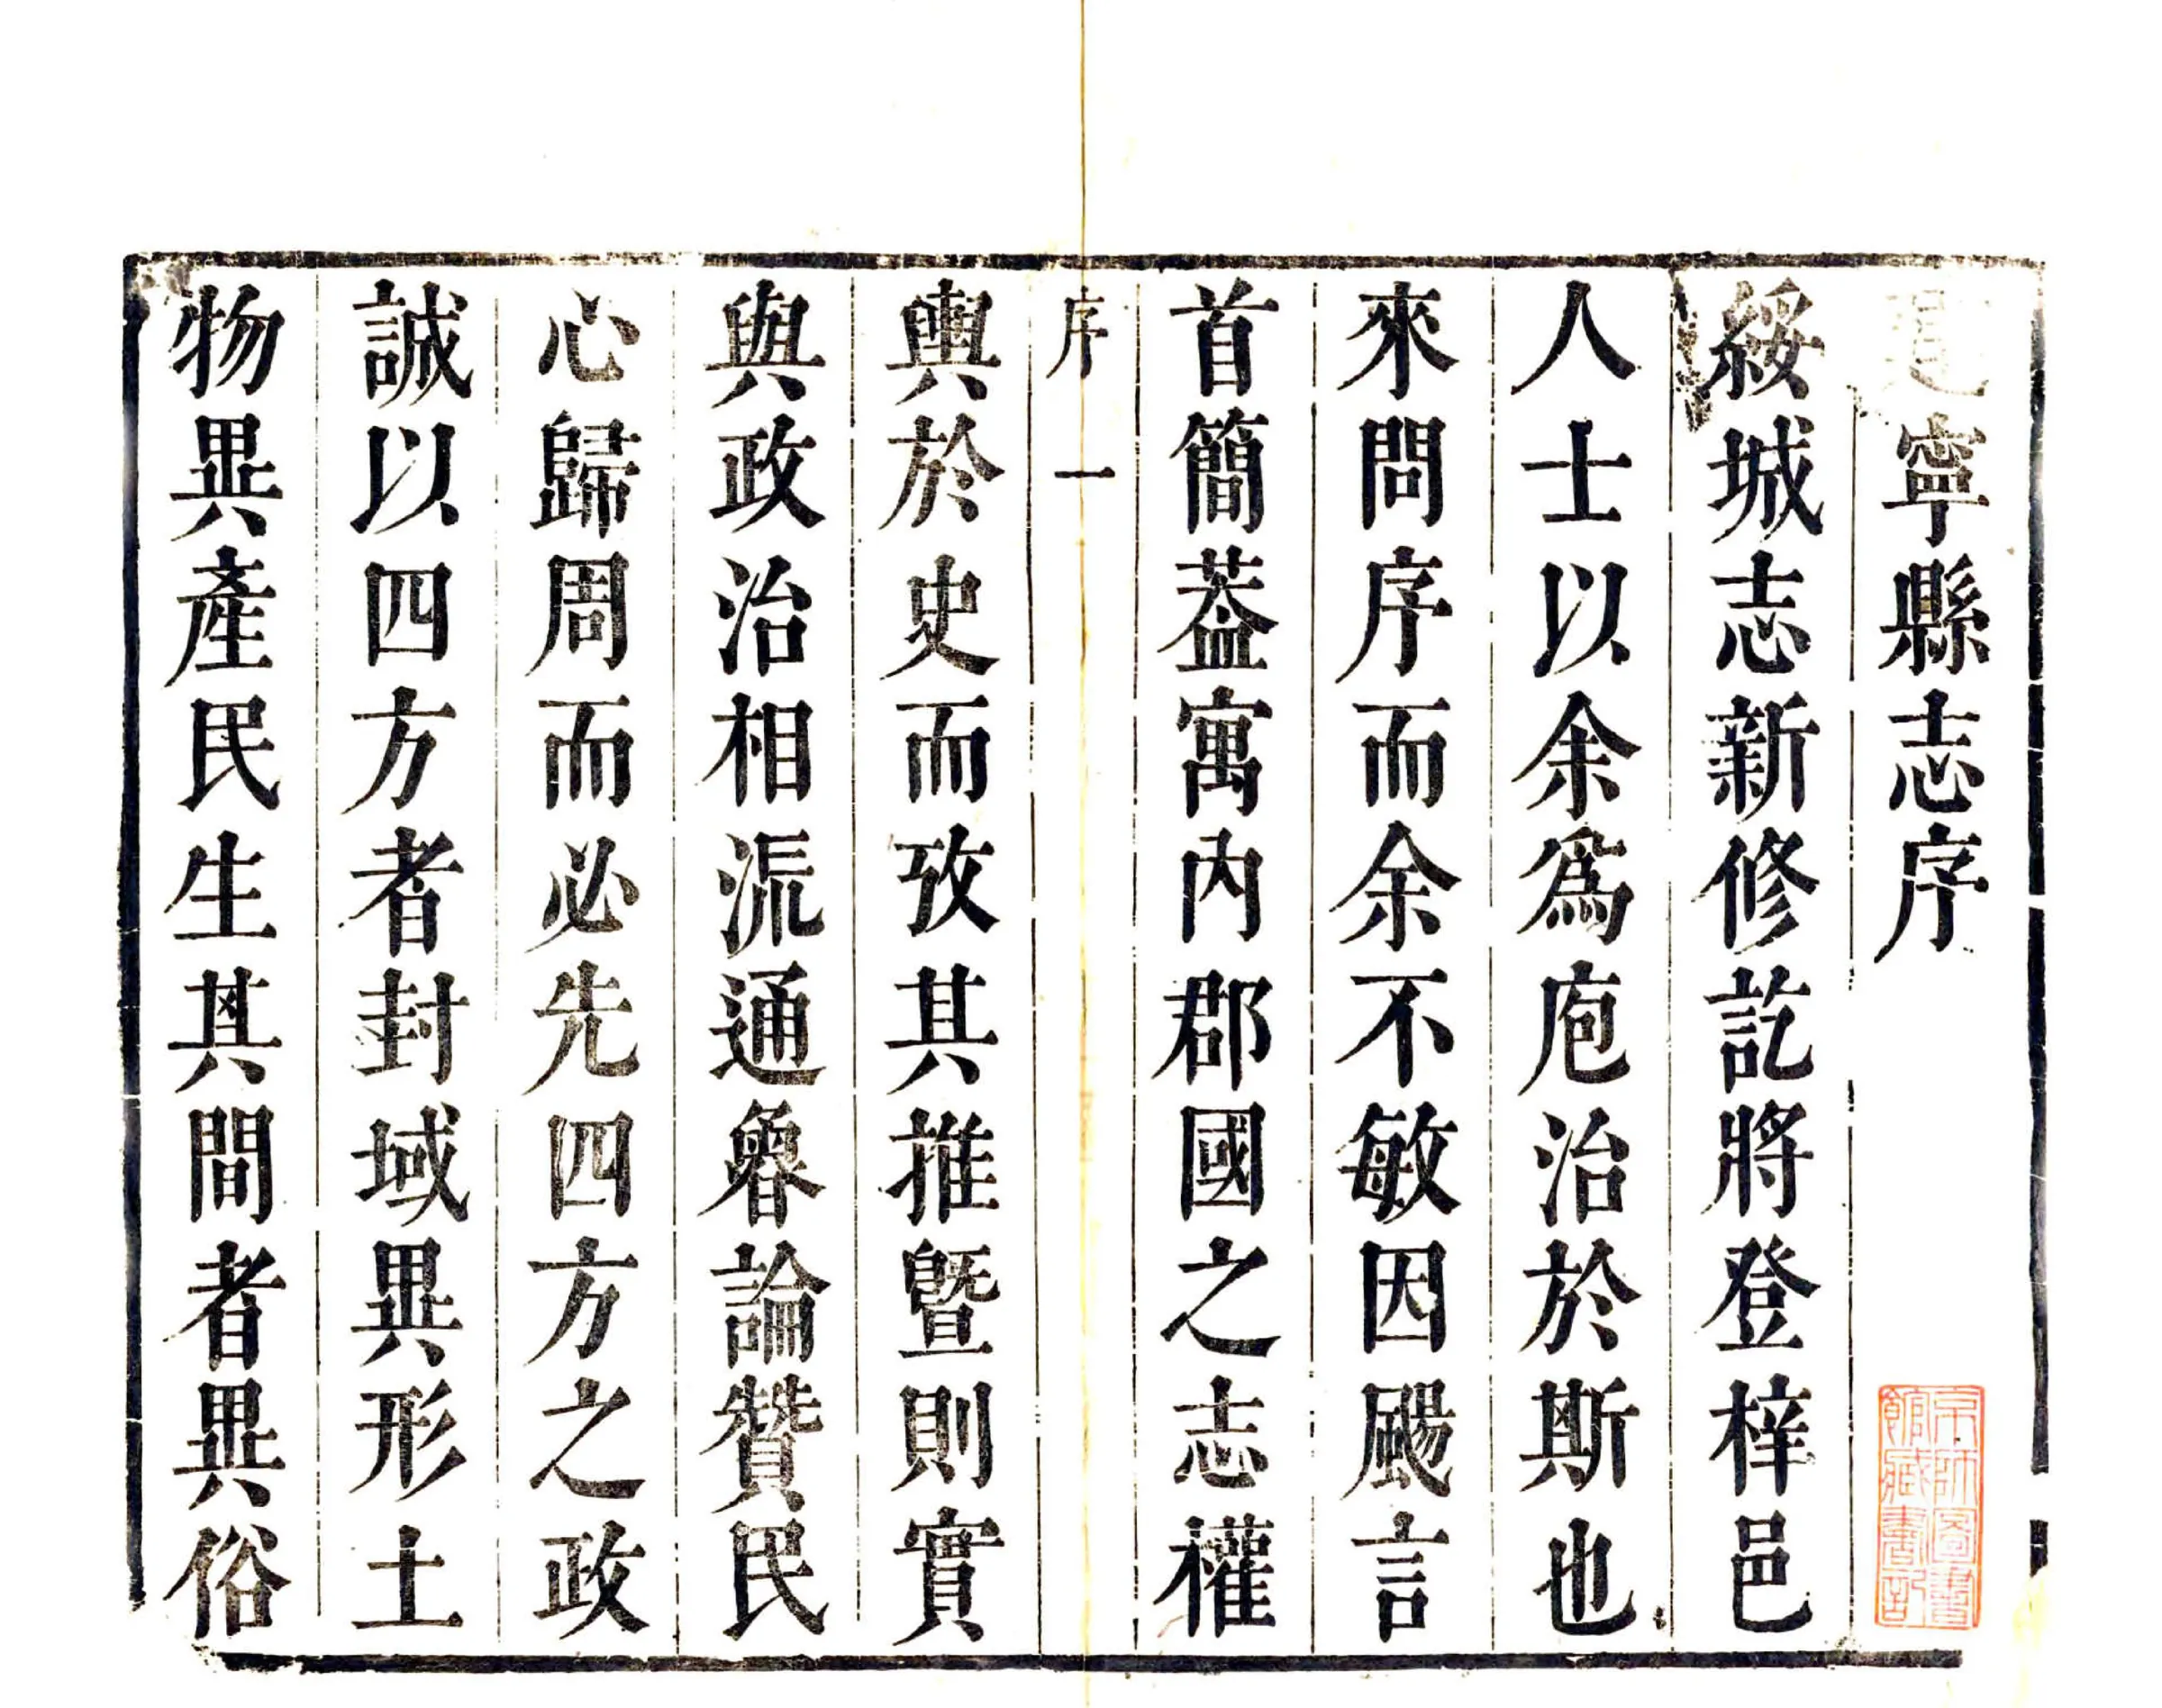 建寧縣志序
綏城志新修訖將登梓邑
人士以余爲庖治於斯也
來問序而余不敏因颺言
首簡葢寓内郡國之志權
序 一
輿於史而攷其推曁則實
與政治相㳅通魯論贊民
心歸周而必先四方之政
誠以四方者封域異形土
物異產民生其間者異俗
京師圖書
館藏書記